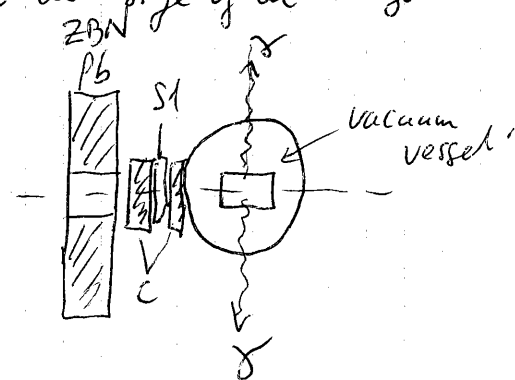 ZBN
Pb
S1
γ
vacuum
vessel
C
γ